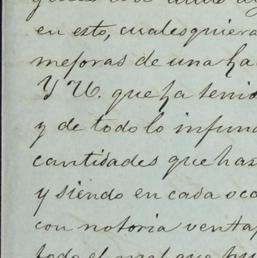 en esto, cualesquiera
mejoras de una ha
Y U. que ha teni
y de todo lo infun
cantidades que has
y siendo en cada oca
con notoria venta
todo el mal que hu